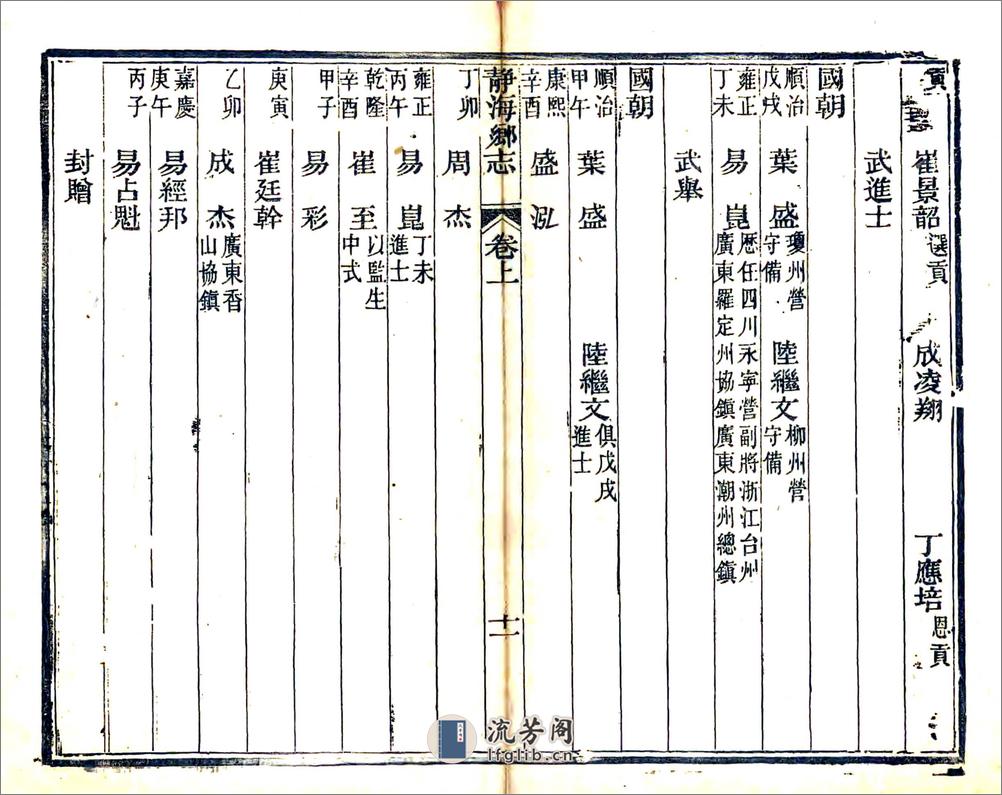 貢 崔景韶 選貢 成凌翔 丁應培 恩貢
武進士
國朝
順治戊戌 葉盛 瓊州營守備 陸繼文 柳州營守備
雍正丁未 易崑 歷任四川永寧營副將浙江台州廣東羅定州協鎮廣東潮州總鎮
武舉
國朝
順治甲午 葉盛 陸繼文 俱戊戌進士
康熙辛酉 盛泓
靜海鄉志 卷上 十一
丁卯 周杰
雍正丙午 易崑 丁未進士
乾隆辛酉 崔至 以監生中式
甲子 易彩
庚寅 崔廷幹
乙卯 成杰 廣東香山協鎮
嘉慶庚午 易經邦
丙子 易占魁
封贈
流芳阁
lfglib.cn